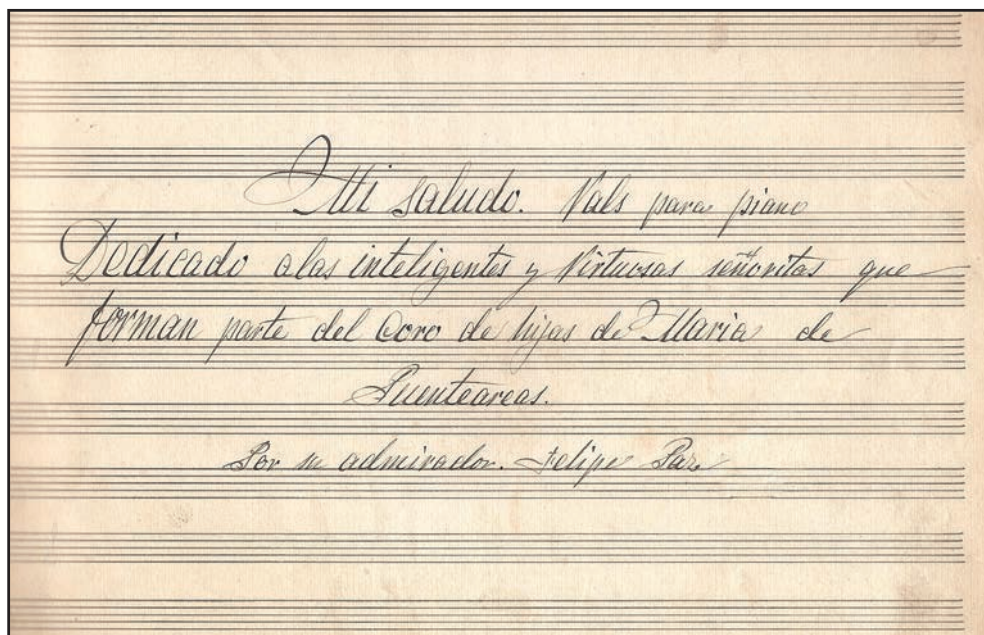 Mi saludo. Vals para piano
Dedicado a las inteligentes y Virtuosas señoritas que
forman parte del Coro de hijas de Maria de
Puenteareas.
Por su admirador. Felipe Paz